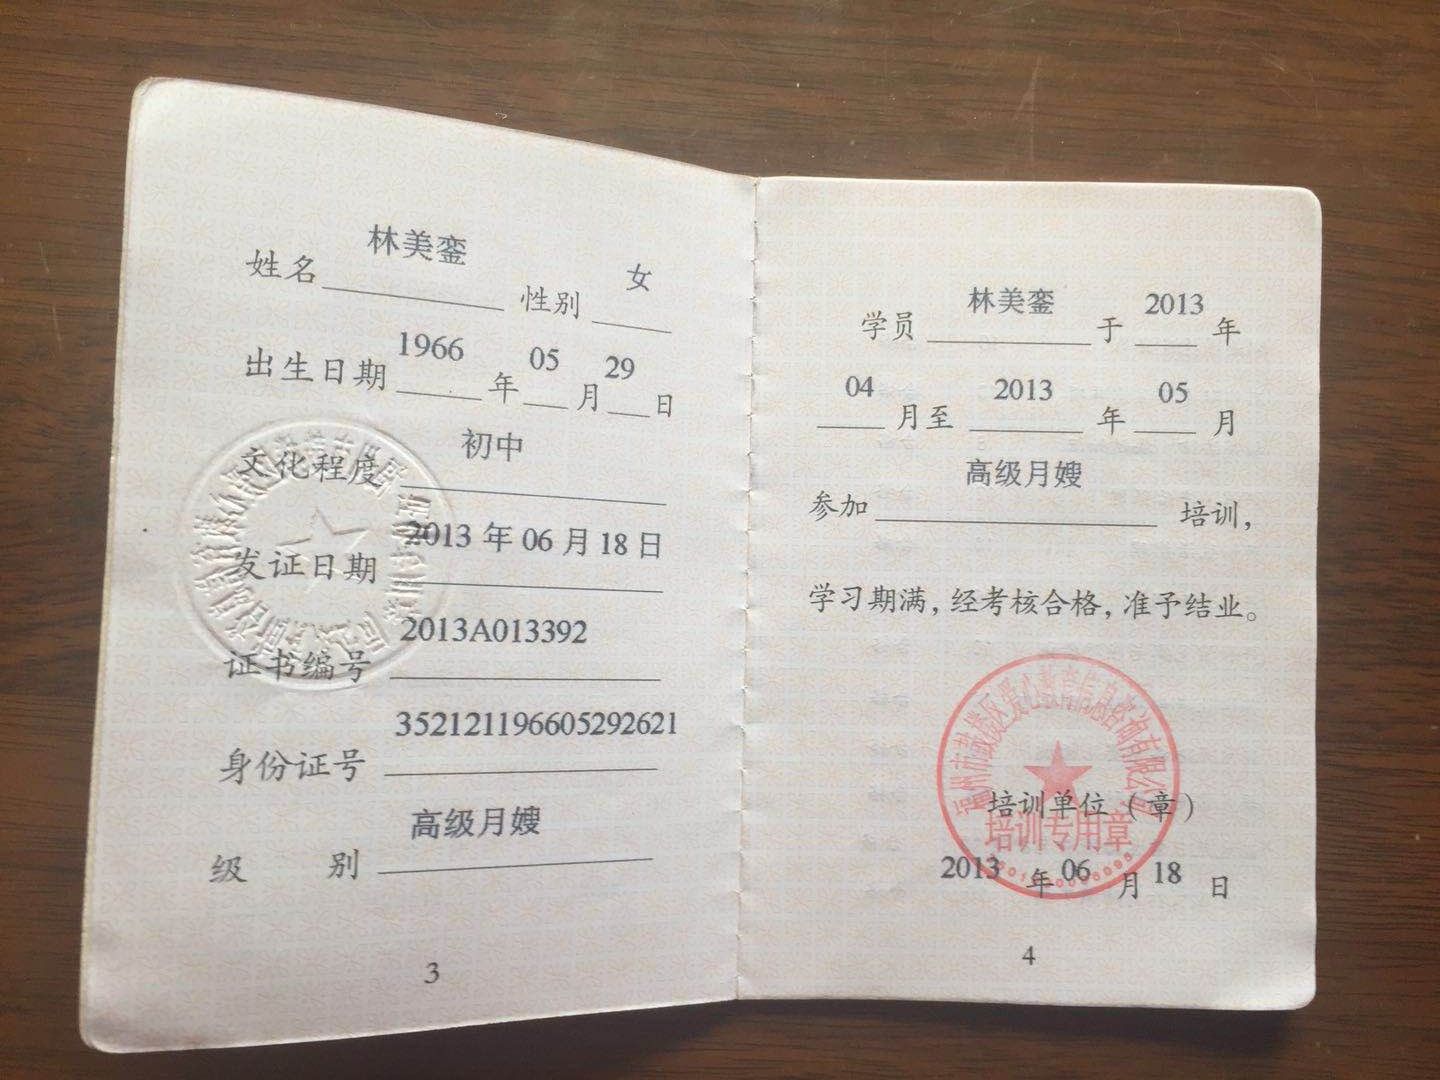 姓名 林美銮 性别 女
出生日期 1966 年 05 月 29 日
文化程度 初中
发证日期 2013 年 06 月 18 日
证书编号 2013A013392
身份证号 352121196605292621
级 别 高级月嫂
3
学员 林美銮 于 2013 年
04 月至 2013 年 05 月
参加 高级月嫂 培训，
学习期满，经考核合格，准予结业。
福州市鼓楼区爱心教育信息咨询有限公司
培训单位（章）
培训专用章
2013 年 06 月 18 日
4